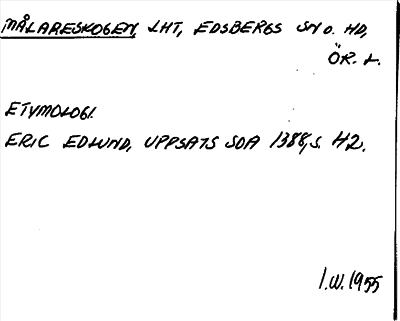 MÅLARESKOGEN, LHT, EDSBERGS SN O. HD,
ÖR. L.
ETYMOLOGI.
ERIC EDLUND, UPPSATS SOA 1388, S. 42.
I.W. 1955